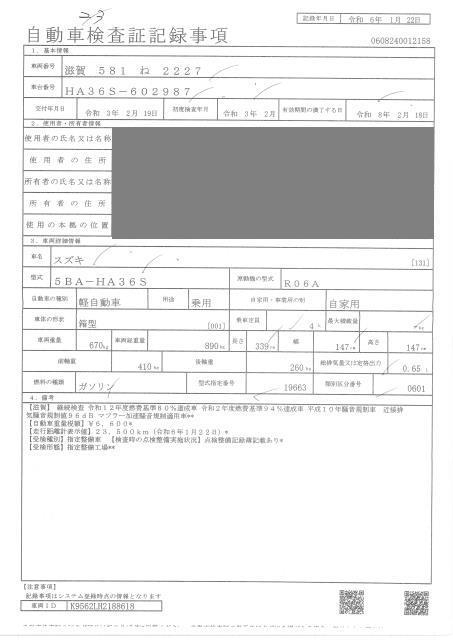 記録年月日 令和 6年 1月 22日
自動車検査証記録事項
0608240012158
1. 基本情報
車両番号 滋賀 581 ね 2227
車台番号 HA36S-602987
交付年月日 令和 3年 2月 19日 初度検査年月 令和 3年 2月 有効期間の満了する日 令和 8年 2月 18日
2. 使用者・所有者情報
使用者の氏名又は名称
使用者の住所
所有者の氏名又は名称
所有者の住所
使用の本拠の位置
3. 車両詳細情報
車名 スズキ [131]
型式 5BA-HA36S 原動機の型式 R06A
自動車の種別 軽自動車 用途 乗用 自家用・事業用の別 自家用
車体の形状 箱型 [001] 乗車定員 4人 最大積載量 kg
車両重量 670kg 車両総重量 890kg 長さ 339cm 幅 147cm 高さ 147cm
前軸重 410kg 後軸重 260kg 総排気量又は定格出力 0.65 L
燃料の種類 ガソリン 型式指定番号 19663 類別区分番号 0601
4. 備考
【滋賀】 継続検査 令和12年度燃費基準80%達成車 令和2年度燃費基準94%達成車 平成10年騒音規制車 近接排
気騒音規制値96dB マフラー加速騒音規制適用車**
【自動車重量税額】¥6,600*
【走行距離計表示値】23,500km (令和6年1月22日)*
【受検種別】指定整備車 【検査時の点検整備実施状況】点検整備記録簿記載あり*
【受検形態】指定整備工場**
【注意事項】
記載事項はシステム登録時点の情報となります
車両ID K9562LH2188618